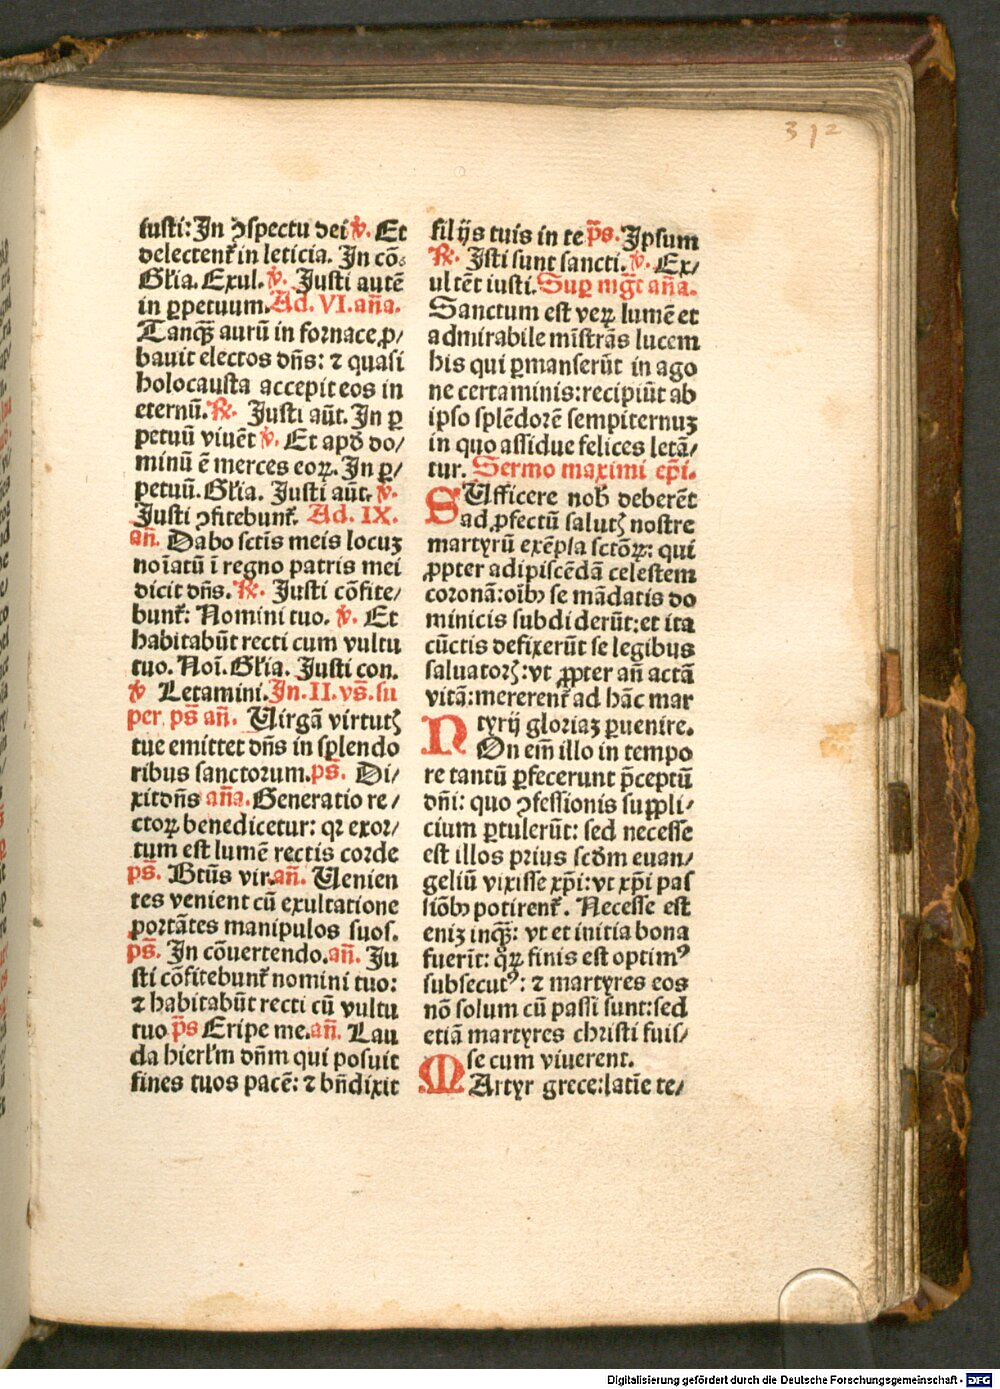 312
iusti: In ꝯspectu dei ꝟ. Et
delectent᷑ in leticia. In cō⸗
Gl̄ia. Exul. ꝟ. Justi autē
in ꝑpetuum. Ad. VI. an̄a.
Tanqꝫ aurū in fornace ꝓ/
bauit electos dn̄s: ⁊ quasi
holocausta accepit eos in
eternū. ℞. Justi aūt. In ꝑ
petuū viuēt ꝟ. Et apd̄ do/
minū ē merces eoꝝ. In ꝑ/
petuū. Gl̄ia. Justi aūt. ꝟ.
Justi ꝯfitebunt᷑. Ad. IX.
an̄. Dabo sctīs meis locuꝫ
noīatū ī regno patris mei
dicit dn̄s. ℞. Justi cōfite/
bunt᷑: Nomini tuo. ꝟ. Et
habitabūt recti cum vultu
tuo. Noī. Gl̄ia. Justi con.
ꝟ Letamini. In. II. vs̄. su
per ps̄ an̄. Uirgā virtutꝭ
tue emittet dn̄s in splendo
ribus sanctorum. ps̄. Di/
xit dn̄s an̄a. Generatio re/
ctoꝝ benedicetur: qꝛ exor/
tum est lumē rectis corde
ps̄. Btūs vir. an̄. Uenien
tes venient cū exultatione
portātes manipulos suos.
ps̄. In cōuertendo. an̄. Ju
sti cōfitebunt᷑ nomini tuo:
⁊ habitabūt recti cū vultu
tuo ps̄ Eripe me. an̄. Lau
da hierl̄m dn̄m qui posuit
fines tuos pacē: ⁊ bn̄dixit
filijs tuis in te ps̄. Ipsum
℞. Isti sunt sancti. ꝟ. Ex/
ultēt iusti. Suꝑ mḡt an̄a.
Sanctum est veꝝ lumē et
admirabile mīstrās lucem
his qui ꝑmanserūt in ago
ne certaminis: recipiūt ab
ipso splēdorē sempiternuꝫ
in quo assidue felices letā/
tur. Sermo maximi ep̄i.
SUfficere nob̄ deberēt
ad ꝓfectū salutꝭ nostre
martyrū exēpla sctōꝝ: qui
ꝓpter adipiscēdā celestem
coronā: oībꝰ se mādatis do
minicis subdiderūt: et ita
cūctis defixerūt se legibus
saluatorꝭ: vt ꝓpter an̄ actā
vitā: mererent᷑ ad hāc mar
tyrij gloriaꝫ ꝑuenire.
NOn eīn illo in tempo
re tantū ꝑfecerunt p̄ceptū
dn̄i: quo ꝯfessionis suppli/
cium ꝑtulerūt: sed necesse
est illos prius scd̄m euan/
geliū vixisse xp̄i: vt xp̄i pas
siōbꝰ potirent᷑. Necesse est
eniꝫ inqꝫ: vt et initia bona
fuerīt: qꝝ finis est optimꝰ
subsecutꝰ: ⁊ martyres eos
nō solum cū passi sunt: sed
etiā martyres christi fuis/
se cum viuerent.
MArtyr grece: latīe te/
Digitalisierung gefördert durch die Deutsche Forschungsgemeinschaft - DFG